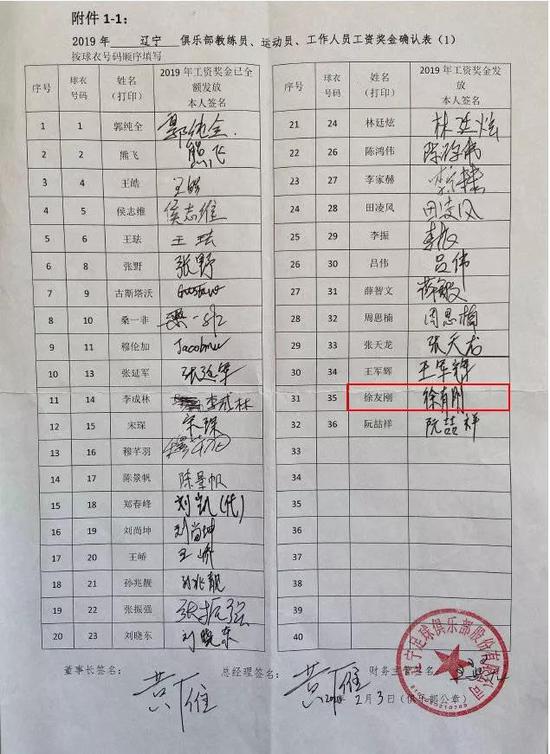 附件 1-1：
2019 年 辽宁 俱乐部教练员、运动员、工作人员工资奖金确认表（1）
按球衣号码顺序填写
序号 球衣号码 姓名（打印） 2019 年工资奖金已全额发放 本人签名
1 1 郭纯全 郭纯全
2 2 熊飞 熊飞
3 4 王皓 王皓
4 5 侯志维 侯志维
5 6 王珐 王珐
6 8 张野 张野
7 9 古斯塔沃 Gustavo
8 10 桑一非 桑一非
9 11 穆伦加
10 13 张延军 张延军
11 14 李成林 李成林
12 15 宋琛 宋琛
13 16 穆芊羽
14 17 陈景帆 陈景帆
15 18 郑春峰 刘凯(代)
16 19 刘尚坤 刘尚坤
17 20 王峤 王峤
18 21 孙兆靓 孙兆靓
19 22 张振强 张振强
20 23 刘晓东 刘晓东
序号 球衣号码 姓名（打印） 2019 年工资奖金发放 本人签名
21 24 林廷炫 林廷炫
22 26 陈鸿伟
23 27 李家赫
24 28 田凌风 田凌风
25 29 李振 李振
26 30 吕伟 吕伟
27 31 薛智文
28 32 周恩楠 周恩楠
29 33 张天龙 张天龙
30 34 王军辉 王军辉
31 35 徐友刚
32 36 阮喆祥 阮喆祥
33
34
35
36
37
38
39
40
董事长签名： 总经理签名： 财务主管签名：
2月3日（俱乐部公章）
宁足球俱乐部股份有限公司